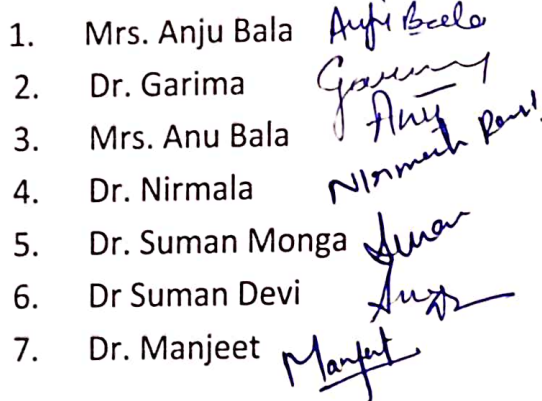 1. Mrs. Anju Bala Anju Bala
2. Dr. Garima Garima
3. Mrs. Anu Bala Anu
4. Dr. Nirmala Nirmala
5. Dr. Suman Monga Suman
6. Dr Suman Devi
7. Dr. Manjeet Manjeet